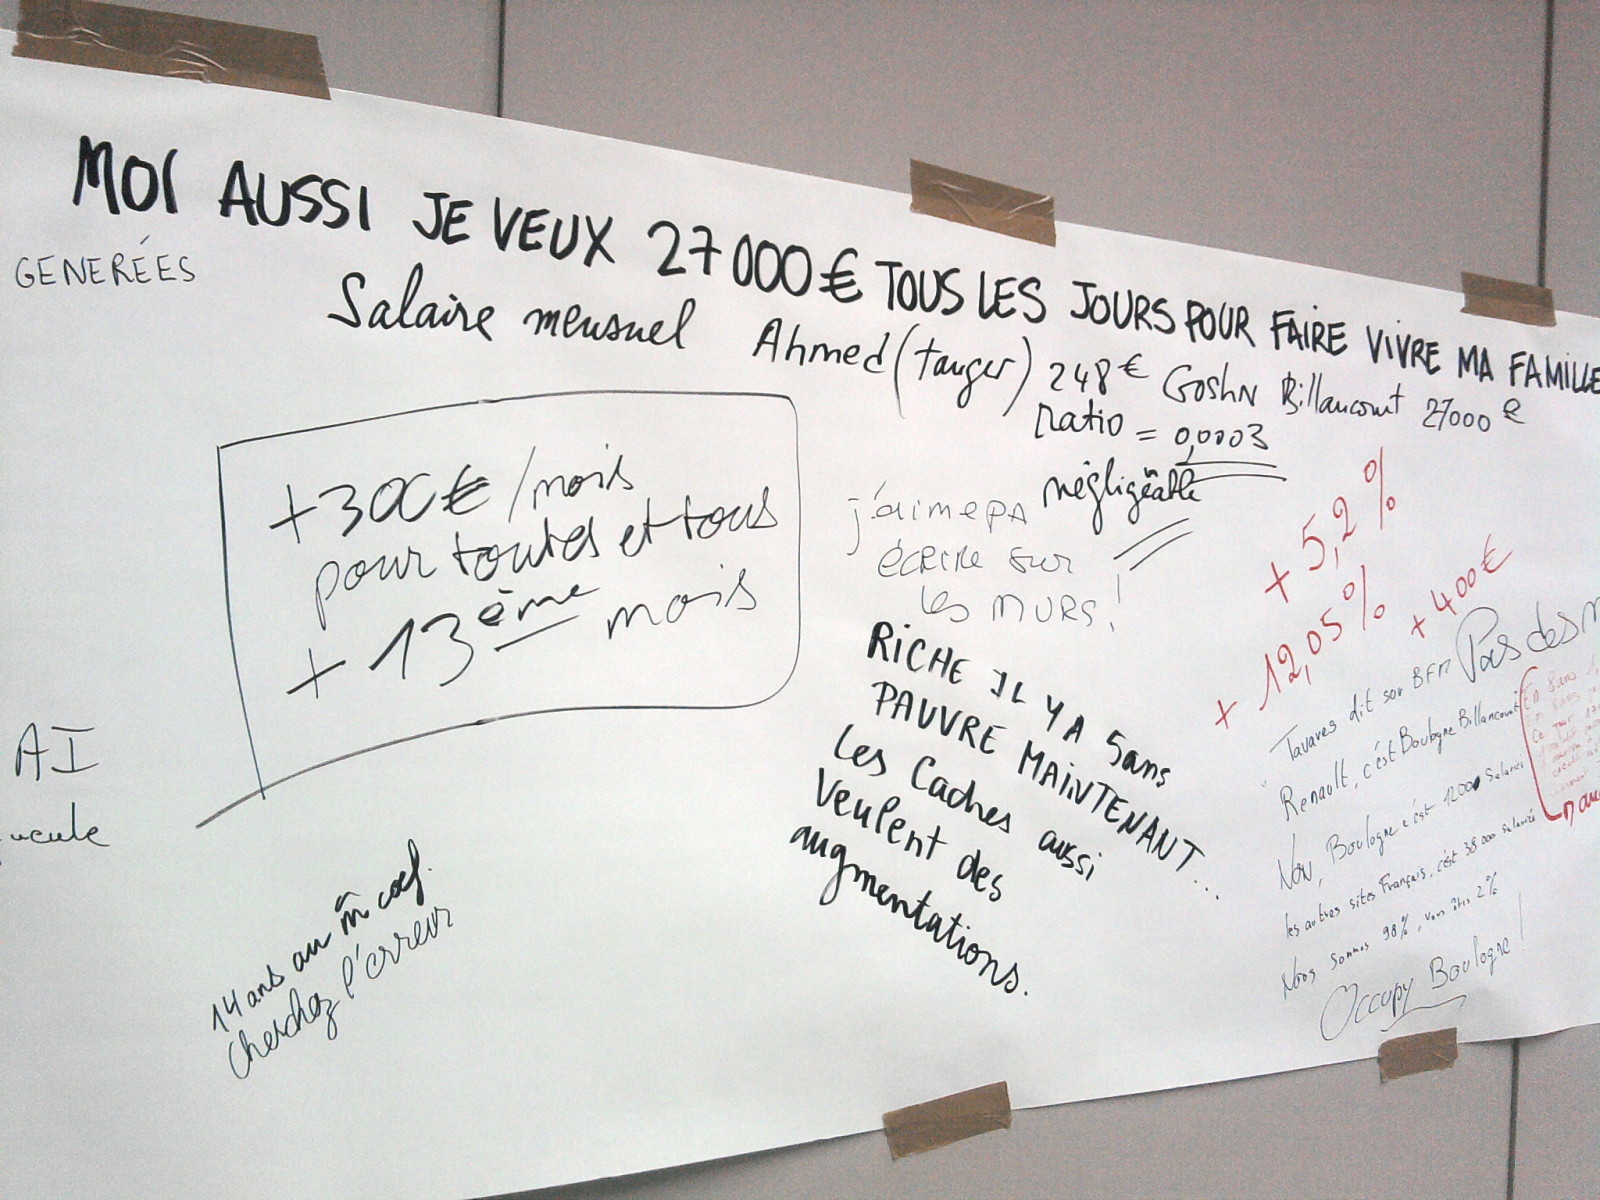 MOI AUSSI JE VEUX 27000€ TOUS LES JOURS POUR FAIRE VIVRE MA FAMILLE
GENERÉES
Salaire mensuel Ahmed (tanger) 248€ Goshn Billancourt 27000€
ratio = 0,0003
négligeable
+300€/mois
pour toutes et tous
+ 13ème mois
j'aime pA
écrire sur
les MURS!
+ 5,2%
+ 12,05%
+ 400€
RICHE IL Y A 5 ans
PAUVRE MAINTENANT...
Les Cadres aussi
Veulent des
augmentations.
AI
14 ans au m̄ coef.
Cherchez l'erreur
Pas des
Tavares dit sur BFM
Renault, c'est Boulogne Billancourt
Non, Boulogne c'est 12000 salariés
les autres sites Français, c'est 38 000 salariés
Nous sommes 98%, vous êtes 2%
Occupy Boulogne!